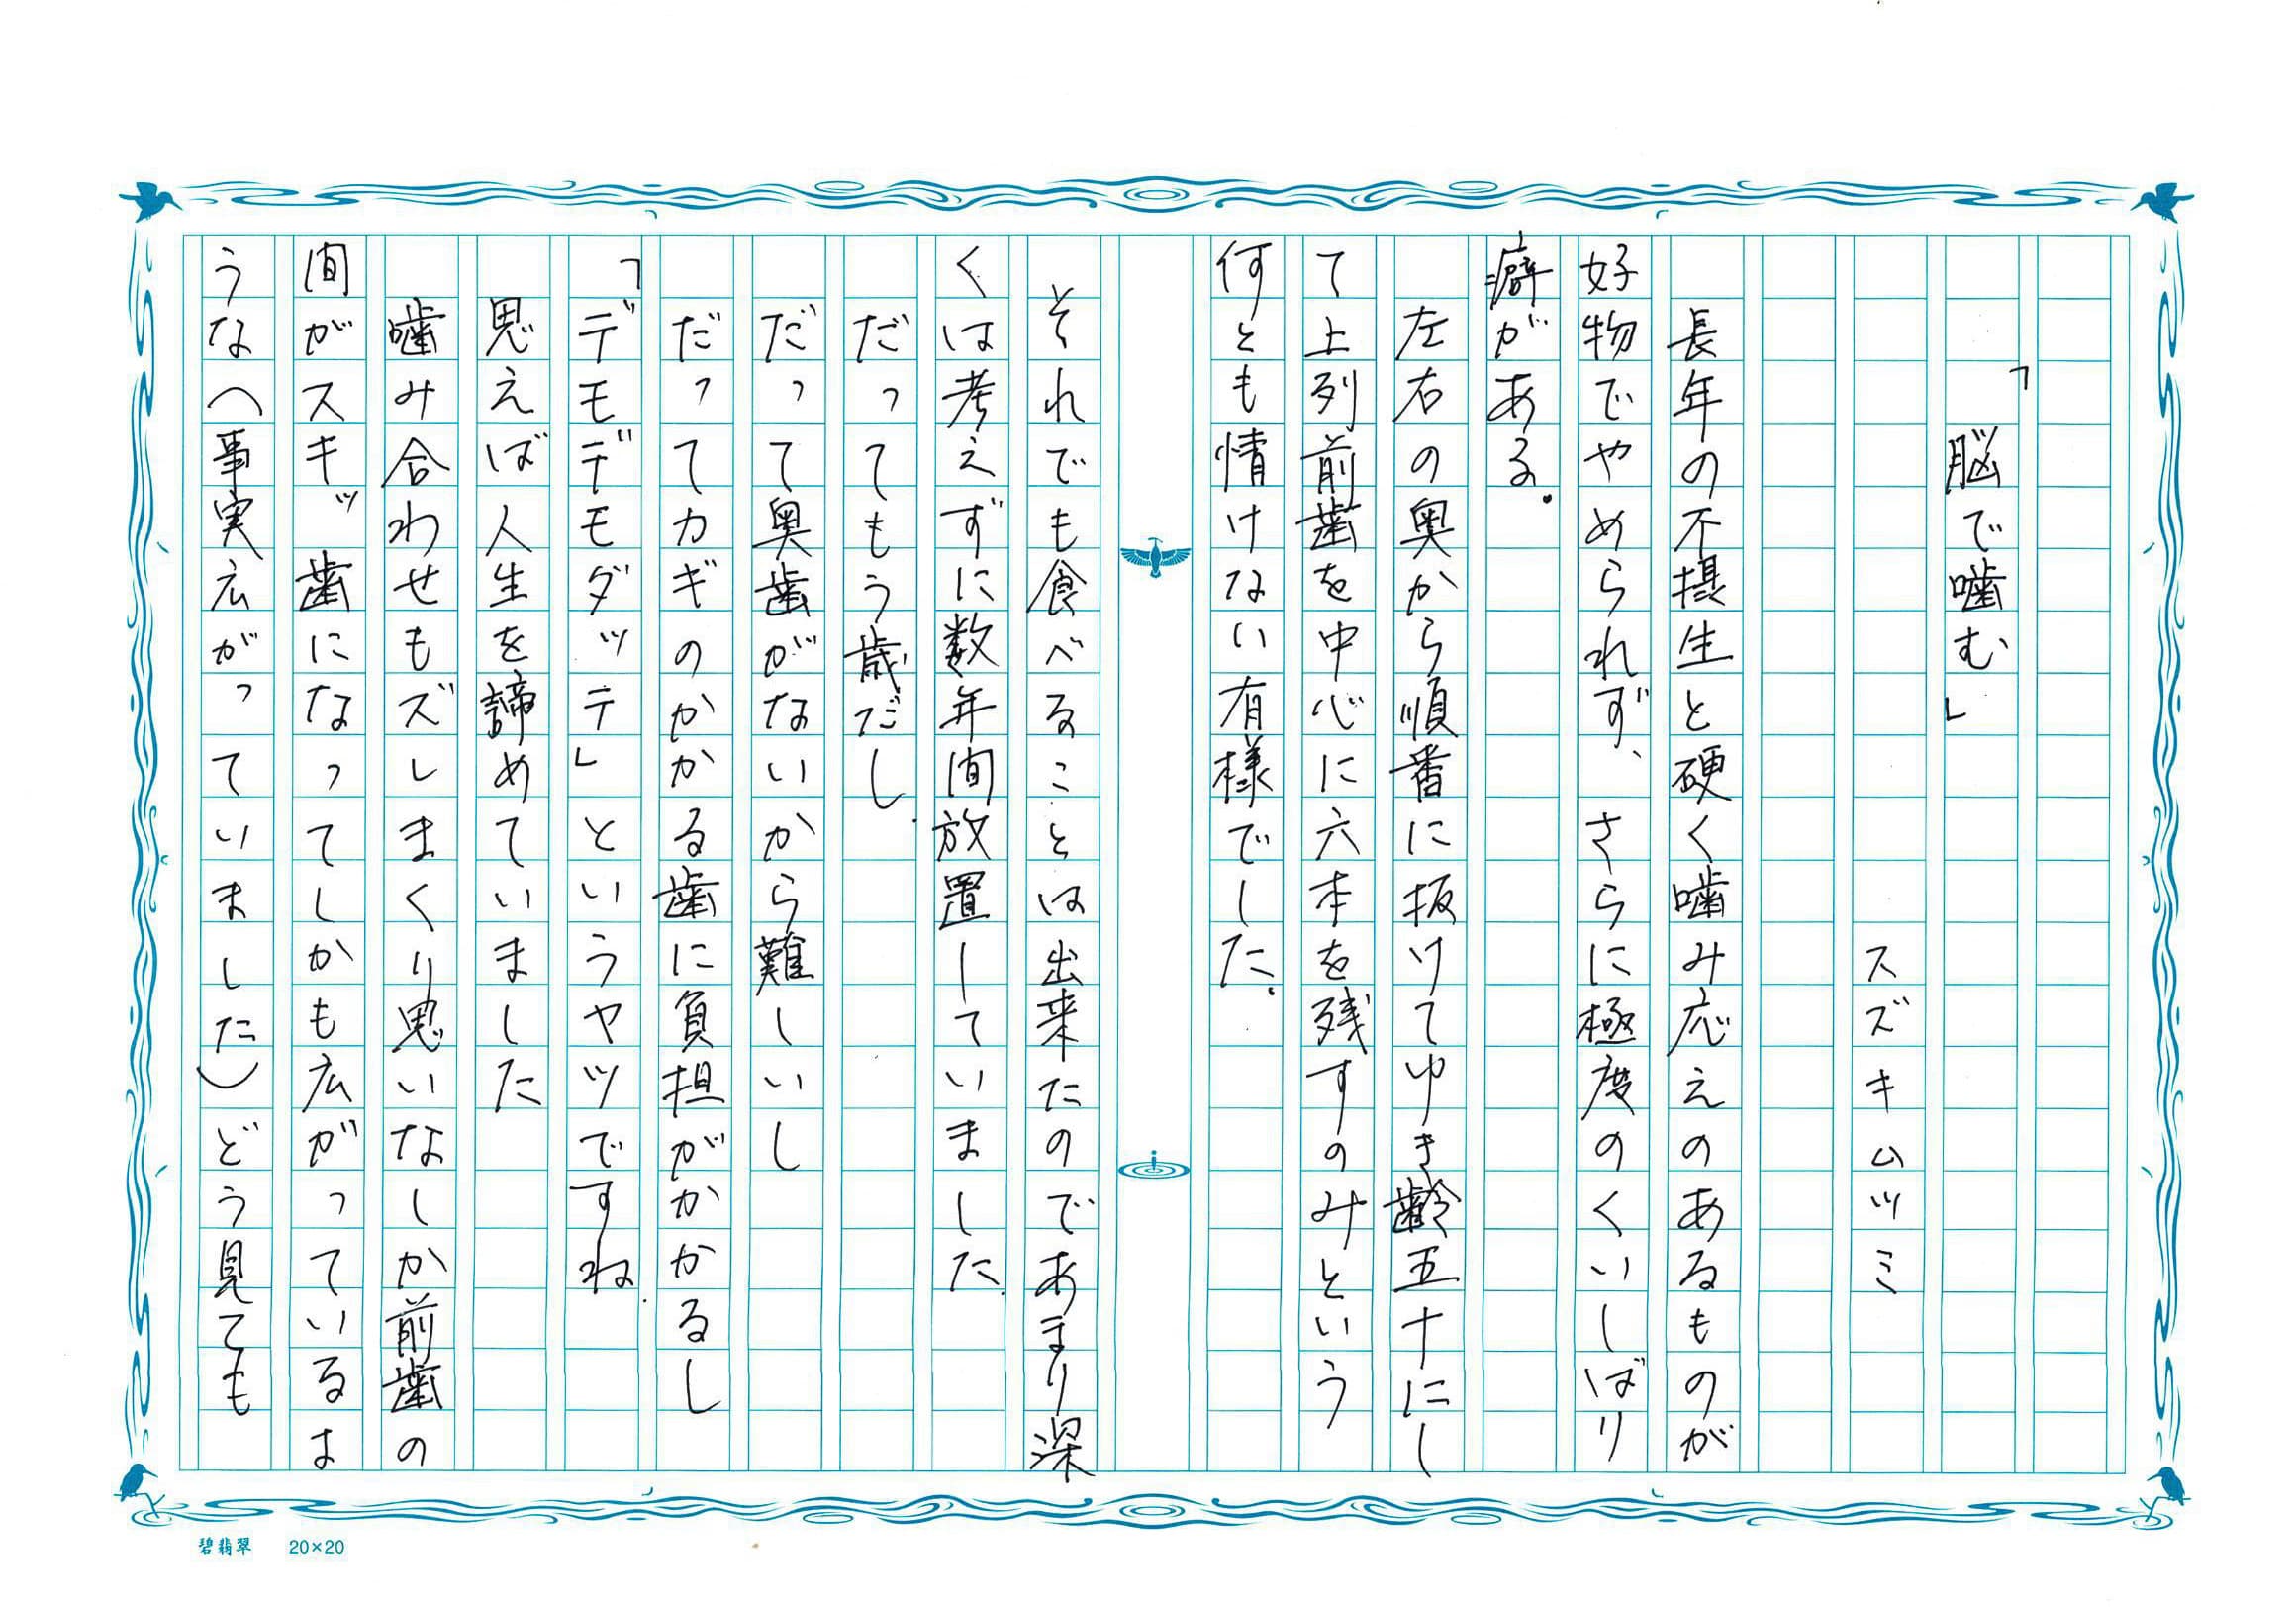 「脳で噛む」
スズキムツミ
長年の不摂生と硬く噛み応えのあるものが
好物でやめられず、さらに極度のくいしばり
癖がある。
左右の奥から順番に抜けてゆき齢五十にし
て上列前歯を中心に六本を残すのみという
何とも情けない有様でした。
それでも食べることは出来たのであまり深
くは考えずに数年間放置していました。
だってもう歳だし.
だって奥歯がないから難しいし
だってカギのかかる歯に負担がかかるし
「デモデモダッテ」というヤツですね.
思えば人生を諦めていました
噛み合わせもズレまくり思いなしか前歯の
間がスキッ歯になってしかも広がっているよ
うな(事実広がっていました)どう見ても
碧翡翠 20×20